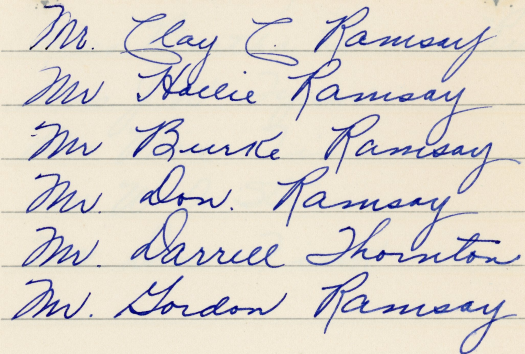 Mr. Clay C. Ramsay
Mr Hollie Ramsay
Mr Burke Ramsay
Mr. Don. Ramsay
Mr. Darrell Thornton
Mr. Gordon Ramsay